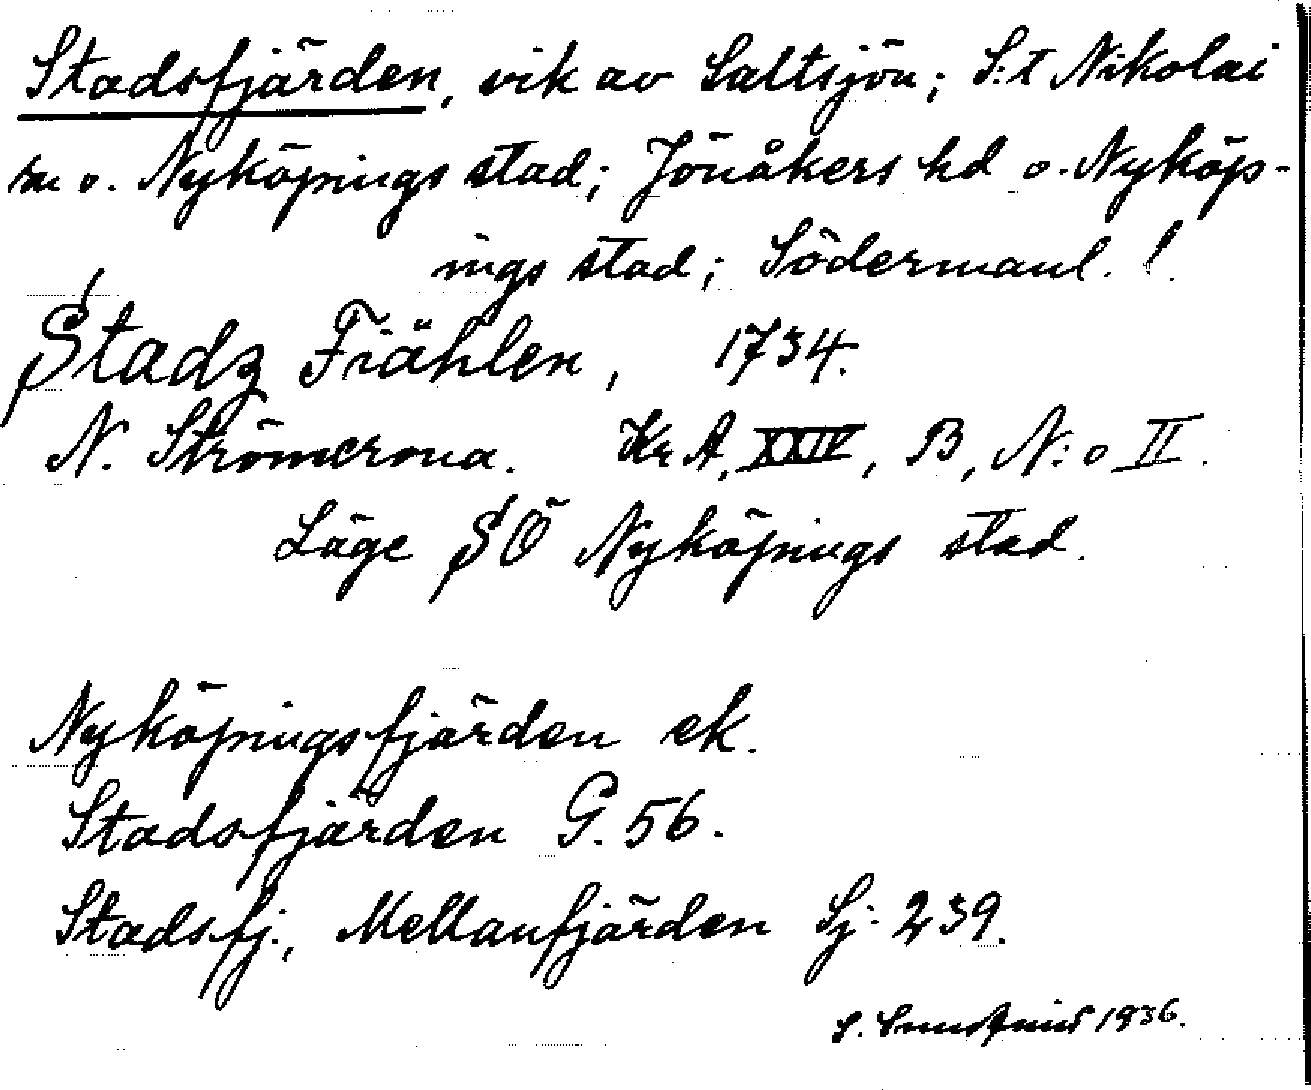 Stadsfjärden, vik av Saltsjön; S:t Nikolai
sn o. Nyköpings stad; Jönåkers hd o. Nyköp-
ings stad; Södermanl. !
Stadz Fiählen, 1734.
N. Strömcrona. Kr A, XXIV, B, N:o II.
Läge SÖ Nyköpings stad.
Nyköpingsfjärden ek.
Stadsfjärden G. 56.
Stadsfj., Mellanfjärden Sj. 239.
S. 1936.